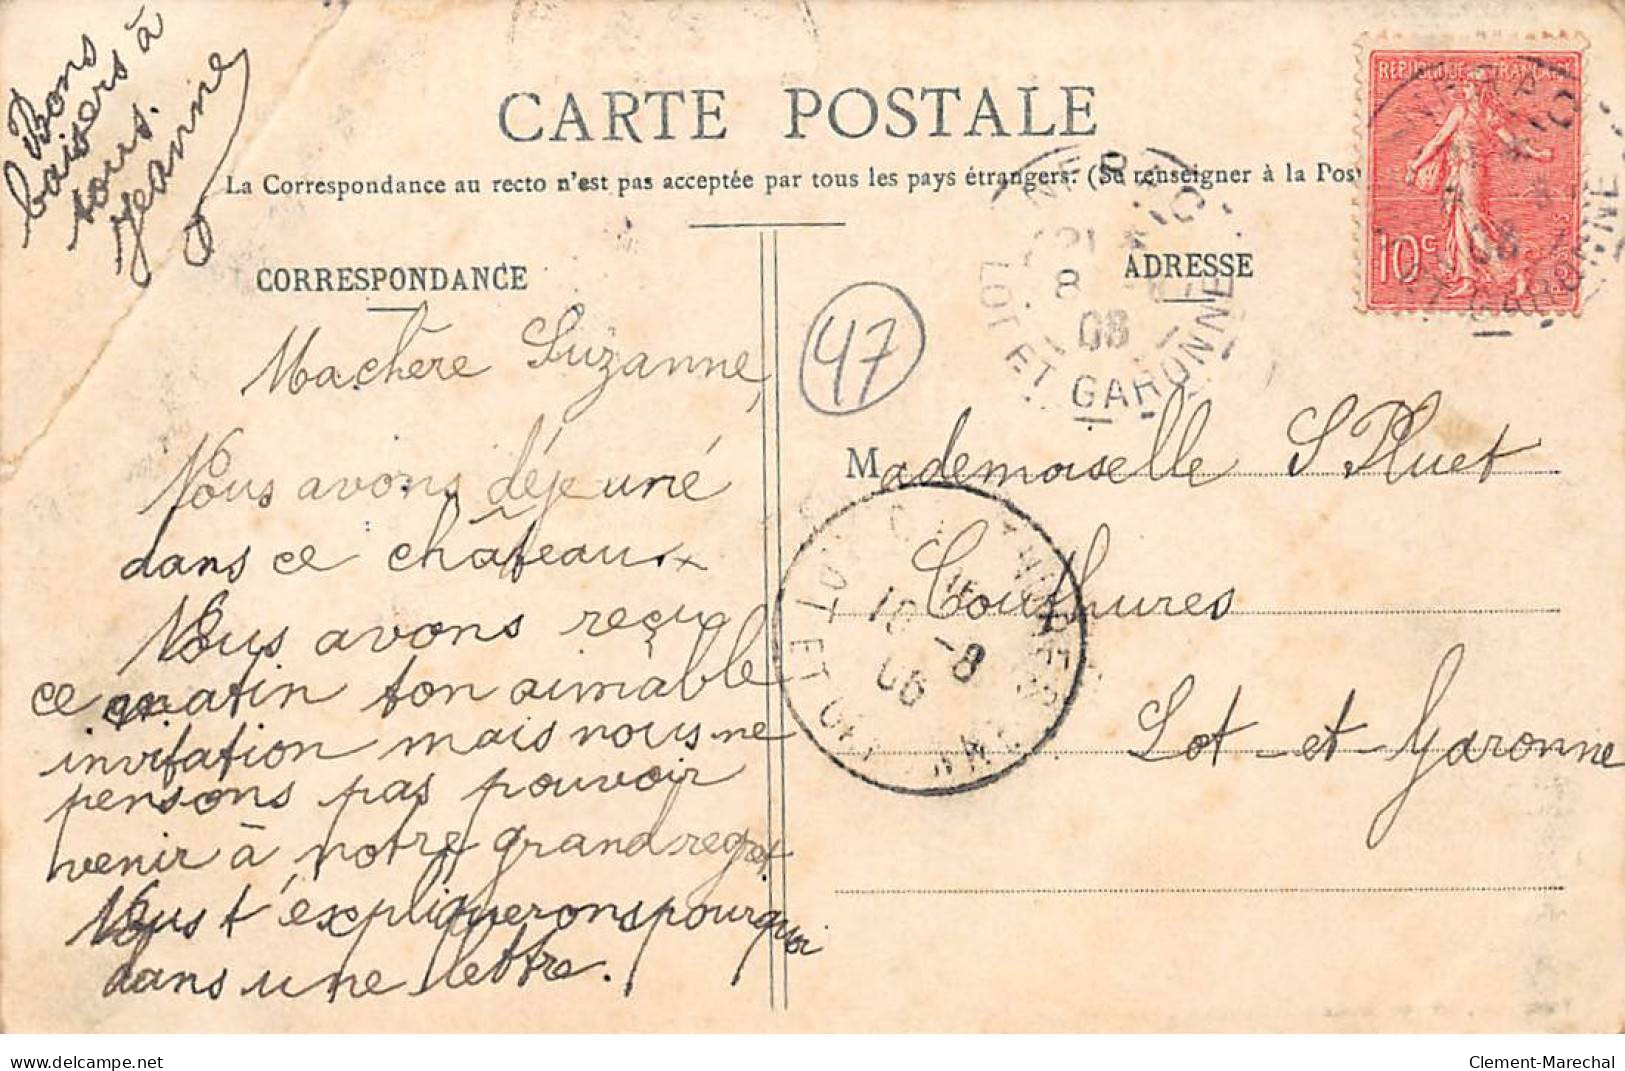 Bons
baisers à
tous.
Jeanne
CARTE POSTALE
La Correspondance au recto n'est pas acceptée par tous les pays étrangers. (Se renseigner à la Pos
CORRESPONDANCE
ADRESSE
REPUBLIQUE FRANÇAISE
10c
8
08
LOT ET GARONNE
47
Ma chère Suzanne,
Nous avons déjeuné
dans ce château x
Nous avons reçu
ce matin ton aimable
invitation mais nous ne
pensons pas pouvoir
venir à notre grand regret
Nous t'expliquerons pourquoi
dans une lettre.
Mademoiselle S Pluet
Couthures
Lot-et-Garonne
LOT ET
-8
www.delcampe.net
Clement-Marechal